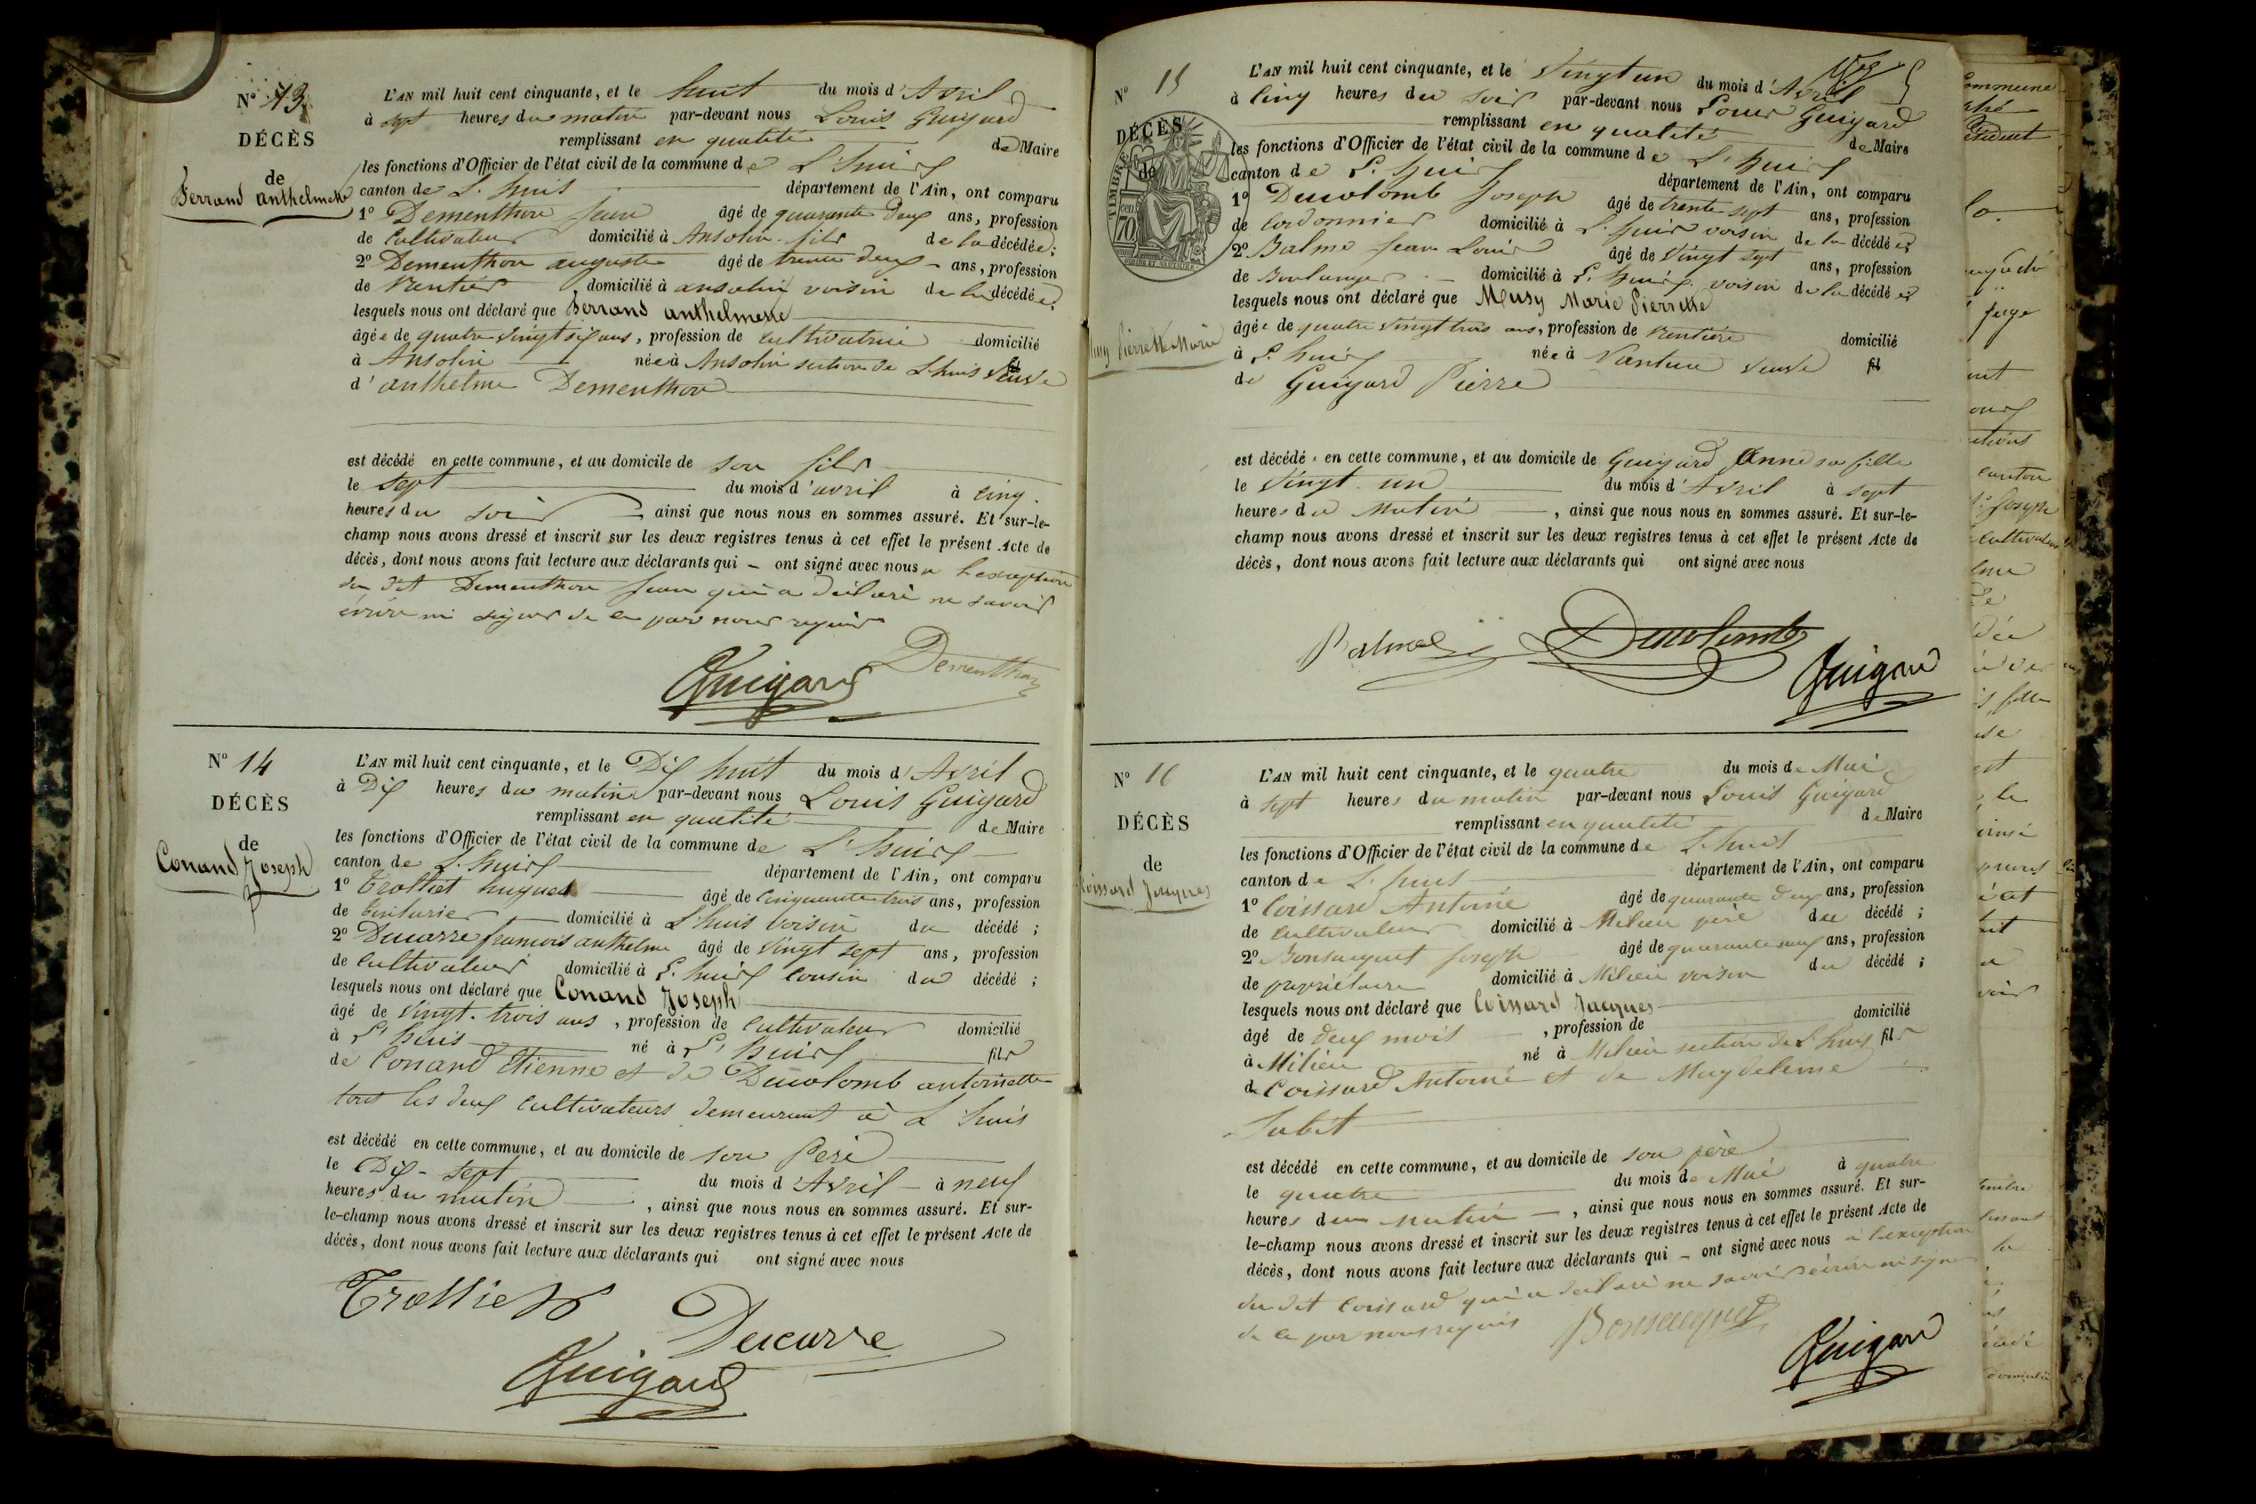 N° 13
DÉCÈS
de
Ferrand anthelmette
L'AN mil huit cent cinquante, et le huit du mois d'Avril
à sept heures du matin par-devant nous Louis Guigard
remplissant en qualité de Maire
les fonctions d'Officier de l'état civil de la commune de L'huis
canton de L'huis département de l'Ain, ont comparu
1° Dementhon Jean âgé de quarante deux ans, profession
de Cultivateur domicilié à Ansolin fils de la décédée;
2° Dementhon auguste âgé de trente deux ans, profession
de Rentier domicilié à ansolin voisin de la décédée;
lesquels nous ont déclaré que Ferrand anthelmette
âgée de quatre vingt six ans, profession de cultivatrice domicilié
à Ansolin née à Ansolin section de L'huis veuve
d'anthelme Dementhon
est décédé en cette commune, et au domicile de son fils
le sept du mois d'avril à cinq
heures du soir ainsi que nous nous en sommes assuré. Et sur-le-
champ nous avons dressé et inscrit sur les deux registres tenus à cet effet le présent Acte de
décès, dont nous avons fait lecture aux déclarants qui – ont signé avec nous a l'exception
du dit Dementhon Jean qui a déclaré ne savoir
écrire ni signer de ce par nous requis
Dementhon
Guigard
N° 14
DÉCÈS
de
Conand Joseph
L'AN mil huit cent cinquante, et le Dix huit du mois d'Avril
à Dix heures du matin par-devant nous Louis Guigard
remplissant en qualité de Maire
les fonctions d'Officier de l'état civil de la commune de L'huis
canton de L'huis département de l'Ain, ont comparu
1° Trolliet hugues âgé de Cinquante trois ans, profession
de teinturier domicilié à L'huis voisin du décédé;
2° Ducarre francois anthelme âgé de vingt sept ans, profession
de Cultivateur domicilié à L'huis Cousin du décédé;
lesquels nous ont déclaré que Conand Joseph
âgé de vingt-trois ans, profession de Cultivateur domicilié
à L'huis né à L'huis fils
de Conand Etienne et de Ducolomb antoinette
tout les deux cultivateurs demeurant à L'huis
est décédé en cette commune, et au domicile de son Père
le Dix-sept du mois d'Avril à neuf
heures du matin, ainsi que nous nous en sommes assuré. Et sur-
le-champ nous avons dressé et inscrit sur les deux registres tenus à cet effet le présent Acte de
décès, dont nous avons fait lecture aux déclarants qui ont signé avec nous
Trolliet
Ducarre
Guigard
N° 15
DÉCÈS
de
TIMBRE
70
Musy Pierrette Marie
L'AN mil huit cent cinquante, et le Vingt un du mois d'Avril
à Cinq heures du soir par-devant nous Louis Guigard
remplissant en qualité de Maire
les fonctions d'Officier de l'état civil de la commune de L'huis
canton de L'huis département de l'Ain, ont comparu
1° Ducolomb Joseph âgé de trente sept ans, profession
de Cordonnier domicilié à L'huis voisin de la décédée
2° Balme Jean Louis âgé de vingt sept ans, profession
de Boulanger domicilié à L'huis voisin de la décédée
lesquels nous ont déclaré que Musy Marie Pierrette
âgée de quatre vingt trois ans, profession de Rentière domicilié
à L'huis née à Nantua veuve fil
de Guigard Pierre
est décédé en cette commune, et au domicile de Guigard Anne sa fille
le vingt un du mois d'Avril à sept
heures du matin, ainsi que nous nous en sommes assuré. Et sur-le-
champ nous avons dressé et inscrit sur les deux registres tenus à cet effet le présent Acte de
décès, dont nous avons fait lecture aux déclarants qui ont signé avec nous
Balme Ducolomb
Guigard
N° 16
DÉCÈS
de
Coissard Jacques
L'AN mil huit cent cinquante, et le quatre du mois de Mai
à sept heures du matin par-devant nous Louis Guigard
remplissant en qualité de Maire
les fonctions d'Officier de l'état civil de la commune de L'huis
canton de L'huis département de l'Ain, ont comparu
1° Coissard Antoine âgé de quarante deux ans, profession
de Cultivateur domicilié à Milieu père du décédé;
2° Bonsacquet Joseph âgé de quarante neuf ans, profession
de propriétaire domicilié à Milieu voisin du décédé;
lesquels nous ont déclaré que Coissard Jacques
âgé de deux mois, profession de domicilié
à Milieu né à Milieu section de L'huis fils
de Coissard Antoine et de Magdeleine
Jubet
est décédé en cette commune, et au domicile de son père
le quatre du mois de Mai à quatre
heures du matin, ainsi que nous nous en sommes assuré. Et sur-
le-champ nous avons dressé et inscrit sur les deux registres tenus à cet effet le présent Acte de
décès, dont nous avons fait lecture aux déclarants qui – ont signé avec nous a l'exception
du dit Coissard qui a déclaré ne savoir écrire ni signer
de ce par nous requis
Bonsacquet
Guigard